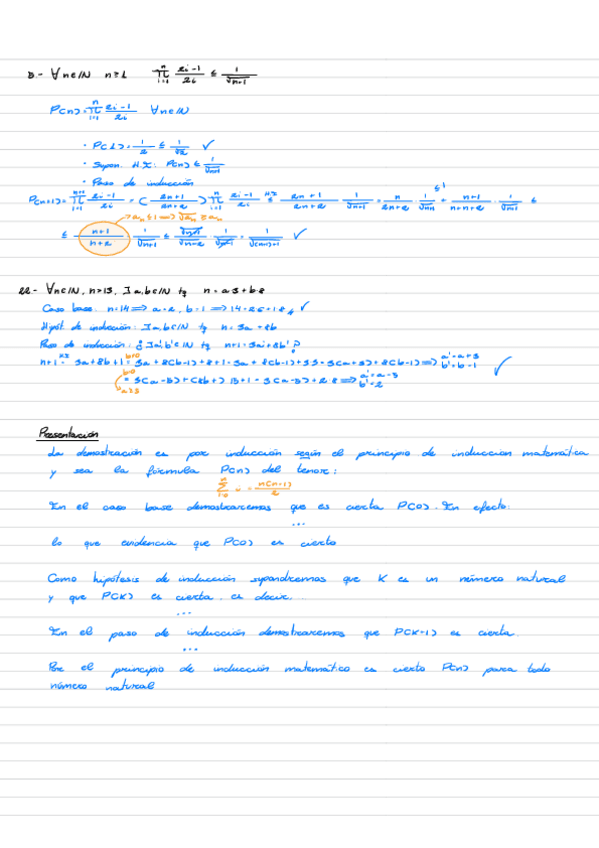 8.- ∀n∈ℕ n≥1 ∏_{i=1}^{n} (2i-1)/(2i) ≤ 1/√(n+1)
P(n)= ∏_{i=1}^{n} (2i-1)/(2i) ∀n∈ℕ
· P(1)= 1/2 ≤ 1/√2 ✓
· Supon. H.I: P(n) ≤ 1/√(n+1)
· Paso de inducción
P(n+1)= ∏_{i=1}^{n+1} (2i-1)/(2i) = ( (2n+1)/(2n+2) ) ∏_{i=1}^{n} (2i-1)/(2i) ≤
≤ (n+1)/(n+2) 1/√(n+1) ≤ √(n+1)/√(n+2) 1/√(n+1) = 1/√((n+1)+1) ✓
22.- ∀n∈ℕ, n>13, ∃a,b∈ℕ tq n=a3+b8
Caso base: n=14 ⟹ a=2, b=1 ⟹ 14=2·3+1·8 ✓
Hipót. de inducción: ∃a,b∈ℕ tq n=3a+8b
Paso de inducción: ¿∃a',b'∈ℕ tq n+1=3a'+8b'?
Presentación
La demostración es por inducción según el principio de induccion matemática
y sea la fórmula P(n) del tenor:
En el caso base demostraremos que es cierta P(0). En efecto:
...
lo que evidencia que P(0) es cierto
Como hipótesis de inducción supondremos que K es un número natural
y que P(K) es cierta, es decir...
...
En el paso de inducción demostraremos que P(K+1) es cierta.
...
Por el principio de inducción matemático es cierto P(n) para todo
número natural